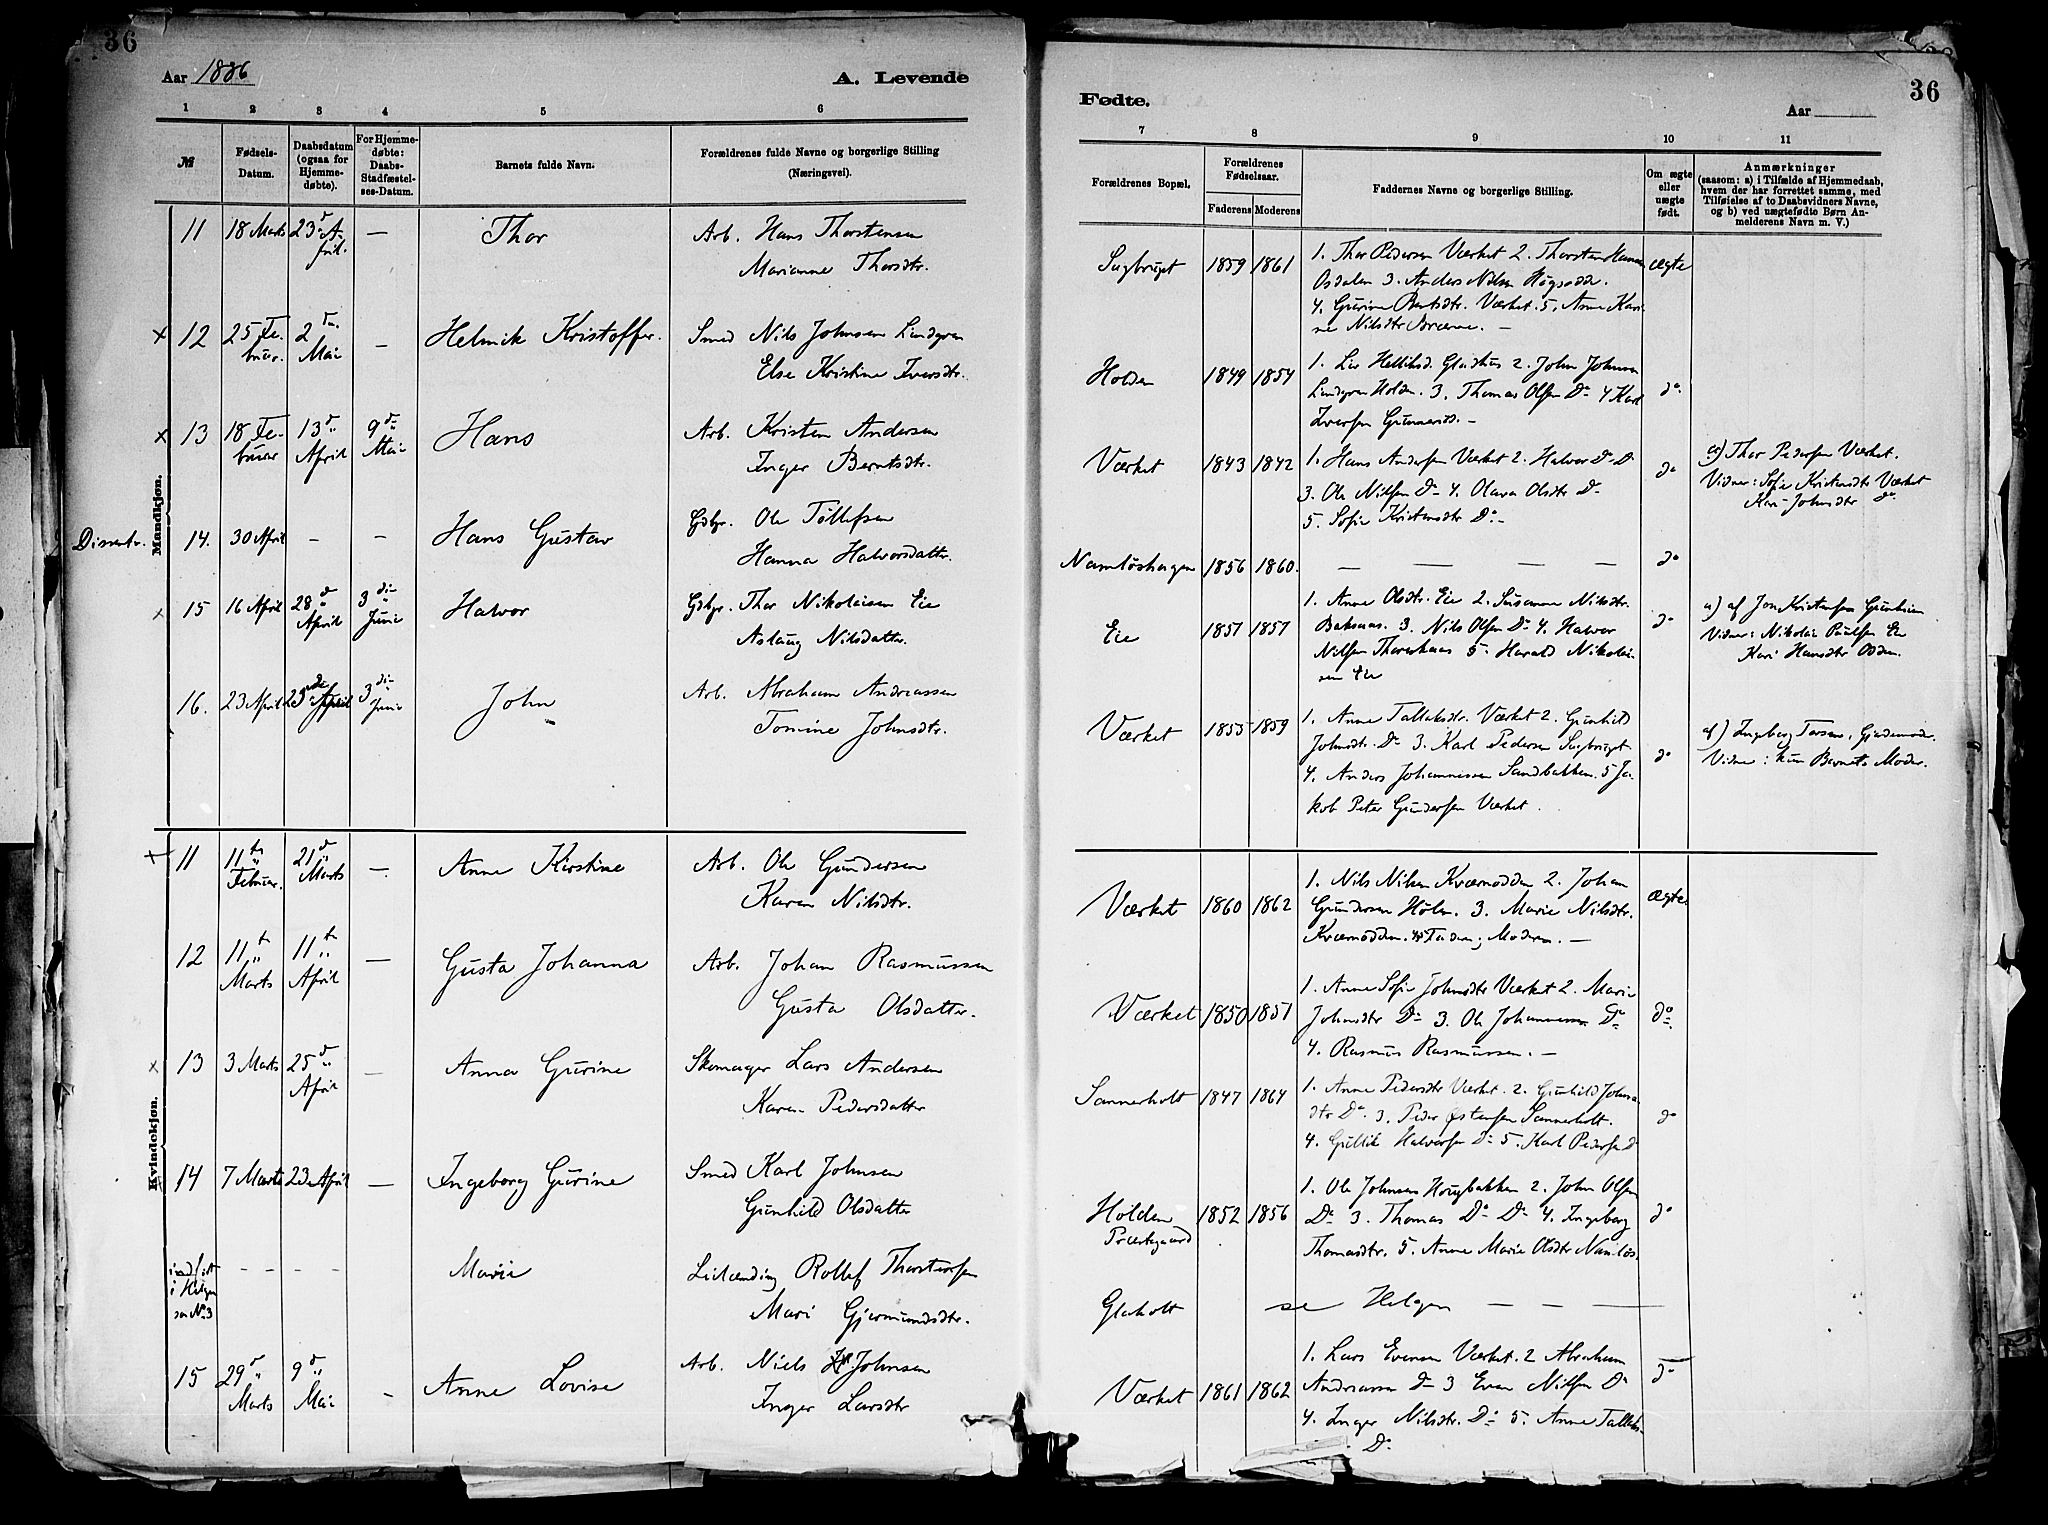 36
Aar 1886
A. Levende
1 2 3 4 5 6
№
Fødsels-Datum.
Daabsdatum (ogsaa for Hjemme-døbte).
For Hjemme-døbte: Daabs-Stadfæstel-ses-Datum.
Barnets fulde Navn.
Forældrenes fulde Navne og borgerlige Stilling (Næringsvei).
Mandkjøn.
11 18 Marts 23d April. — Thor Arb. Hans Thorstensen
Marianne Thorsdtr.
x 12 25 Februar. 2den Mai — Helmik Kristoffer. Smed Nils Johnsen Lindgren
Else Kristine Iversdtr.
x 13 18 Februar 13d April 9de Mai Hans Arb. Kristen Andersen
Inger Berntsdtr.
Dissentr. 14. 30 April - - Hans Gustav Gdbr. Ole Tollefsen
Hanna Halvorsdatter.
x 15 16 April 28d April 3die Juni Halvor Gdbr. Thor Nikolaisen Eie
Aslaug Nilsdatter.
16. 23 April 23de April 3die Juni John Arb. Abraham Andreassen
Tomine Johnsdtr.
Kvindekjøn.
x 11 11te Februar. 21d Marts — Anne Kirstine Arb. Ole Gundersen
Karen Nilsdtr.
12 11te Marts 11te April — Gusta Johanna Arb. Johan Rasmussen
Gusta Olsdatter.
x 13 3 Marts 25d April — Anna Gurine Skomager Lars Andersen
Karen Pedersdatter
14 7 Marts 23de April — Ingeborg Gurine Smed Karl Johnsen
Gunhild Olsdatter
indført i Helgen som No 3 - - - - Marie Rollef Thorstensen
Mari Gjermundsdtr.
15 29d Marts 9d Mai - Anne Lovise Arb. Niels Johnsen
Inger Larsdtr
Fødte.
Aar
36
7 8 9 10 11
Forældrenes Bopæl.
Forældrenes Fødselsaar.
Faderens Moderens
Faddernes Navne og borgerlige Stilling.
Om ægte eller uægte født.
Anmærkninger
(saasom: a) i Tilfælde af Hjemmedaab, hvem der har forrettet samme, med Tilføielse af to Daabsvidners Navne, og b) ved uægtefødte Børn Anmelderens Navn m. V.)
Sagbruget 1859 1861 1. Thor Pedersen Værket 2. Thorsten Hansen ægte
Osdalen 3. Anders Nilsen
4. Gurine Berntsdtr. Værket. 5. Anne Karine Nilsdtr —
Holden 1849 1854 1. 2. John Johnsen
Lindgren Holden. 3. Thomas Olsen Do 4 Karl do
Iversen —
Værket 1843 1842 1. Hans Andersen Værket 2. Halvor Do Do do
3. Ole Nilsen Do 4. Olava Olsdtr Do
5. Sofie Kristensdtr Do —
a) Thor Pedersen Værket.
Vidner: Sofie Kristensdtr Værket
Kari Johnsdtr Do
Namløshagen 1856 1860. — — — — do
Eie 1857 1857 1. Anne Olsdtr. Eie 2. Susanne Nilsdtr.
Baksaas. 3. Nils Olsen Do 4. Halvor do
Nilsen 5. Harald Nikolaisen Eie
a) af Jon Kristensen
Vidner: Nikolai Paulsen Eie
Kari Hansdtr
Værket 1855 1859 1. Anne Tallaksdtr. Værket 2. Gunhild
Johnsdtr. Do 3. Karl Pedersen Sagbruget do
4. Anders Johannessen Sandbakken. 5 Jakob Peter Gundersen Værket.
a) Ingeborg Gjordemoder.
Vidner: kun Barnets Moder.
Værket 1860 1862 1. Nils Nilsen Kværnodden 2. Johan ægte
Gundersen Holm. 3. Marie Nilsdtr.
Kværnodden. 4 Faderen, Moderen. —
Værket 1850 1851 1. Anne Sofie Johnsdtr Værket 2. Marie
Johnsdtr Do 3. Ole Johannessen Do do
4. Rasmus Rasmussen. —
Sannerholt 1847 1864 1. Anne Pedersdtr Værket. 2. Gunhild Johnsdtr Do. 3. Peder Østensen Sannerholt. do
4. Gullik Halvorsen Do 5. Karl Pedersen Do
Holden Præstegaard 1852 1856 1. Ole Johnsen Hougbakken 2. John Olsen
Do 3. Thomas Do Do 4. Ingeborg do
Thomasdtr. 5. Anne Marie Olsdtr Namløs
Glaholt se Helgen — — —
Værket 1861 1862 1. Lars Evensen Værket. 2 Abraham
Andreassen Do 3 Even Nilsen Do do
4. Inger Nilsdtr. Do 5. Anne Tallaks-
Do